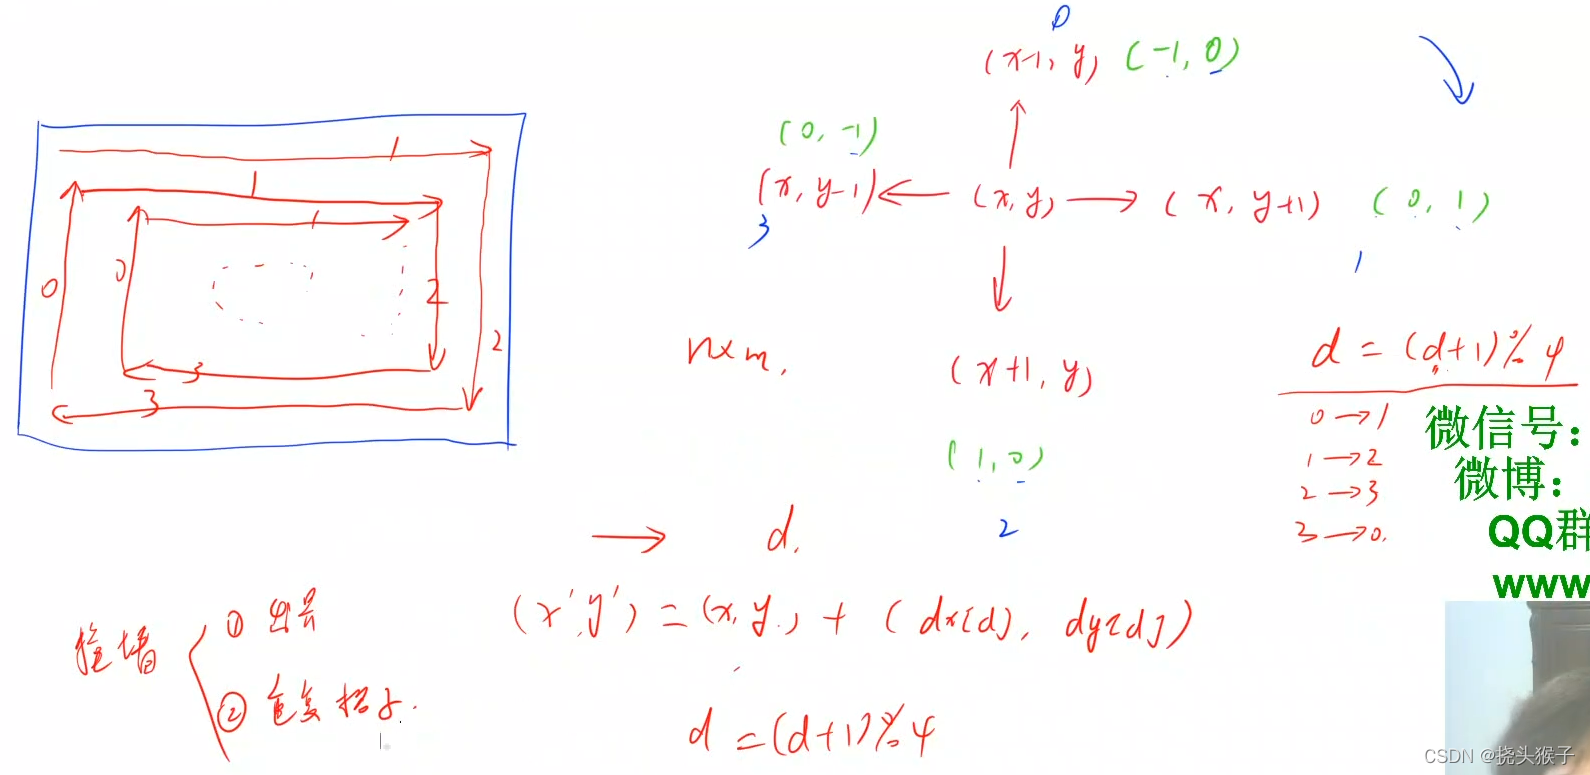 0
(x-1, y) (-1, 0)
(0, -1)
(x, y-1) (x, y) (x, y+1) (0, 1)
3
1
1
1
1
0
0
2
2
3
3
n×m.
(x+1, y)
(1, 0)
2
d = (d+1)%4
0→1
1→2
2→3
3→0.
微信号:
微博:
QQ群
www
→ d.
(x',y') = (x,y.) + (dx[d], dy[d])
撞墙
① 出界
② 重复格子.
d = (d+1)%4
CSDN @挠头猴子